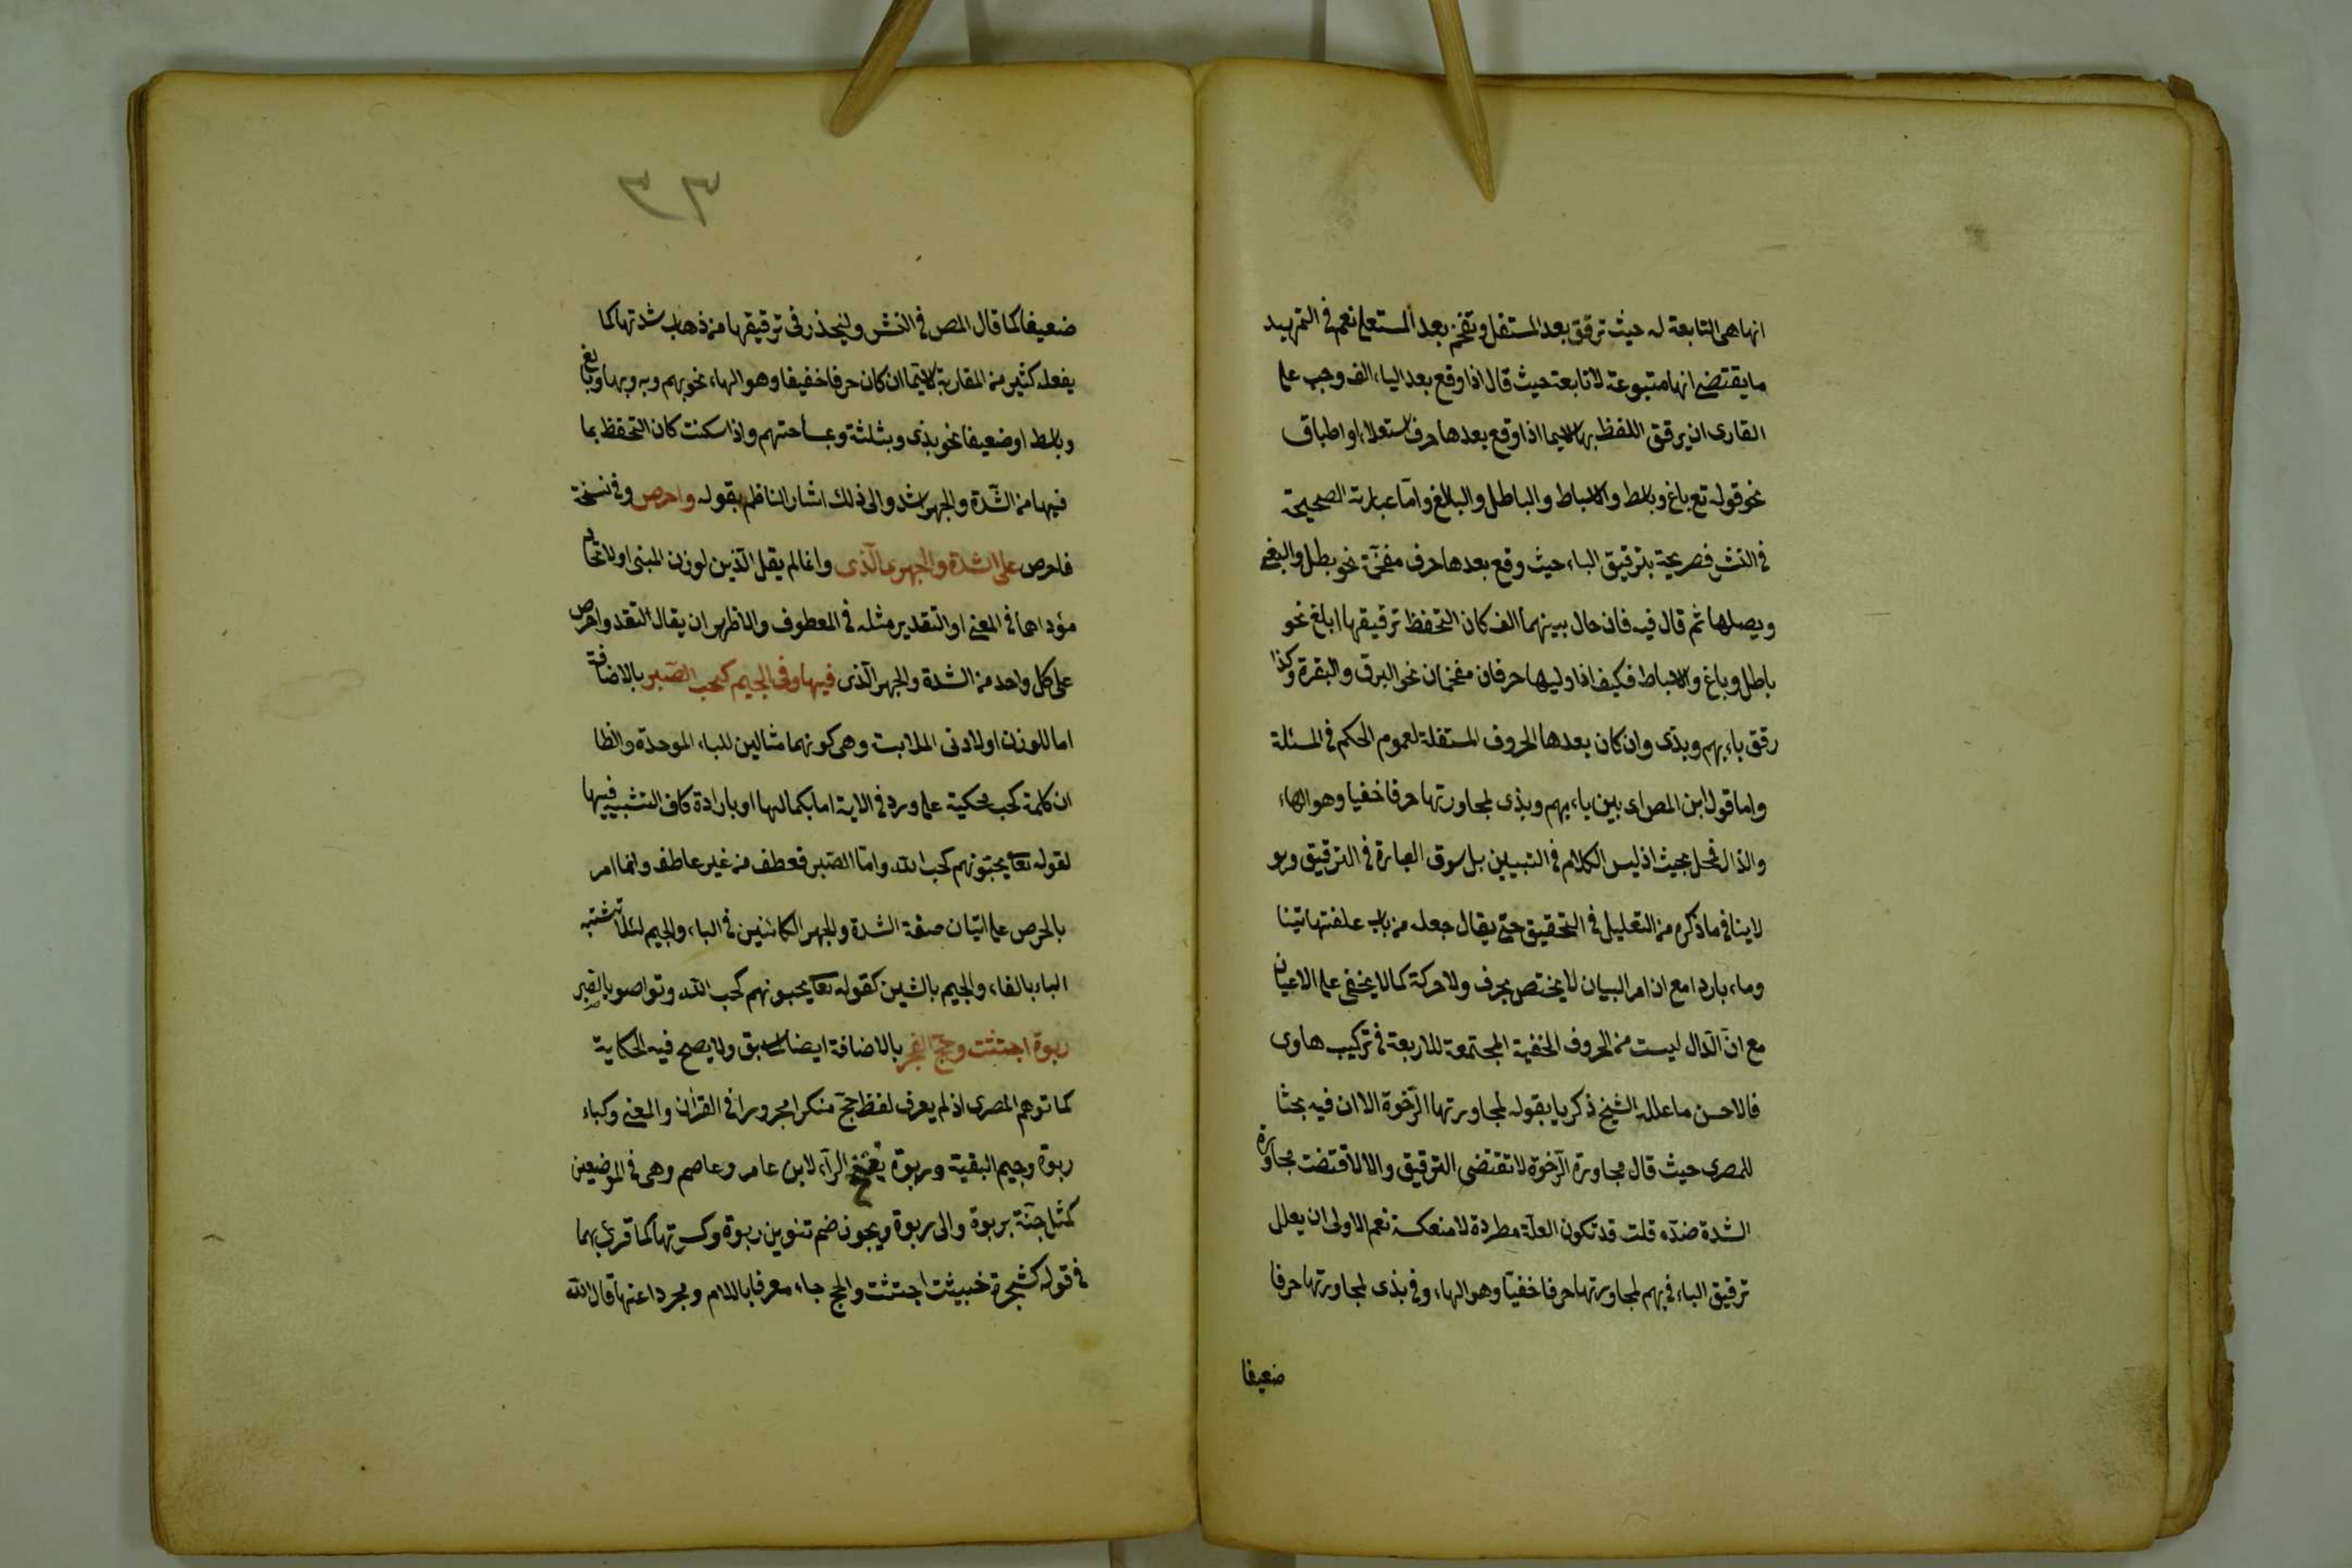 انها هى التابعة له حيث ترقق بعد المستفل وتفخم بعد المستعلى نعم فى التمهيد
ما يقتضى انها متبوعة لا تابعة حيث قال اذا وقع بعد الياء الف وجب على
القارى ان يرقق اللفظ بها لاسيما اذا وقع بعدها حرف استعلاء او اطباق
نحو قوله تع باغ وباسط والاسباط والباطل والبالغ واما عبارته الصحيحة
فى النشر فصريحة بترقيق الباء حيث وقع بعدها حرف مفخمة نحو بطل والبغى
ويصلها ثم قال فيه فان حال بينهما الف كان التحفظ ترقيقها ابلغ نحو
باطل وباغ والاسباط فكيف اذا وليها حرفان مفخمان نحو البرق والبقرة وكذا
رقق باء بهم وبذى وان كان بعدها الحروف المستفلة لعموم الحكم فى المسئلة
واما قول ابن المص اى بين باء بهم وبذى لمجاورتها حرفا خفيا وهو الهاء
والذال فمحل بحيث اذ ليس الكلام فى التبيين بل سوق العبارة فى الترقيق وهو
لا ينافى ما ذكره من التعليل فى التحقيق حتى يقال جعله من باب علفتها تبنا
وماء باردا مع ان امر البيان لا يختص بحرف ولا حركة كما لا يخفى على الاعيان
مع ان الذال ليست من الحروف الخفية المجتمعة للاربعة فى تركيب هاوى
فالاحسن ما علله الشيخ ذكريا بقوله لمجاورتها الرخوة الا ان فيه بحثا
للمصرى حيث قال مجاورة الرخوة لا تقتضى الترقيق والا لاقتضت مجاورة
الشدة ضده قلت قد تكون العلة مطردة لا منعكسة نعم الاولى ان يعلل
ترقيق الباء فى بهم لمجاورتها حرفا خفيا وهو الهاء وفى بذى لمجاورتها حرفا
ضعيفا
٣٣
ضعيفا كما قال المص فى النشر وليحذر فى ترقيقها من ذهاب شدتها كما
يفعله كثير من المقاربة لاسيما ان كان حرفا خفيفا وهو الهاء نحو بهم وبه وبها وباغ
وباسط او ضعيفا نحو بذى وبثلثة وبساحتهم واذا سكنت كان التحفظ بما
فيها من الشدة والجهر اشد والى ذلك اشار الناظم بقوله واحرص وفى نسخة
فاحرص على الشدة والجهر الذى وانما لم يقل الذين لوزن المبنى او لاتحاد
مؤداهما فى المعنى او التقدير مثله فى المعطوف والاظهر ان يقال التقد واحرص
على كل واحد من الشدة والجهر الذى فيها وفى الجيم كحب الصبر بالاضافة
اما للوزن او لادنى الملابسة وهى كونهما مثالين للباء الموحدة والظا
ان كلمة كحب محكية على ورد فى الاية اما بكمالها او بارادة كاف التشبيه فيها
لقوله تعا يحبونهم كحب الله واما الصبر فعطف من غير عاطف وانما امر
بالحرص على اتيان صفة الشدة والجهر الكائنين فى الباء والجيم لئلا تشتبه
الباء بالفاء والجيم بالشين كقوله تعا يحبونهم كحب الله وتواصو بالصبر
ربوة اجتثت وحج الفجر بالاضافة ايضا لما سبق ولا يصح فيه الحكاية
كما توهم المصرى اذ لم يعرف لفظ حج منكرا مجرورا فى القرآن والمعنى وكباء
ربوة وجيم البقية وربوة بفتح الرآء لابن عامر وعاصم وهى فى الموضعين
كمثل جنة بربوة والى ربوة ويجوز ضم تنوين ربوة وكسرتها كما قرئ بهما
فى قوله كشجرة خبيثت اجتثت والحج جاء معرفا باللام ومجردا عنها قال الله